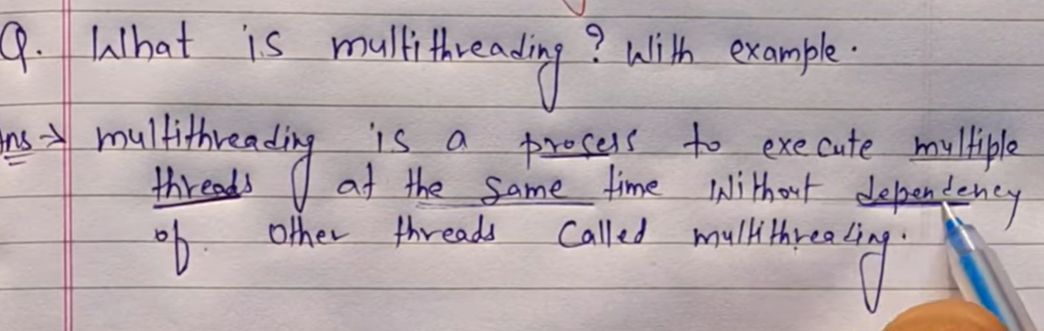 Q. What is multithreading? With example.
Ans → multithreading is a process to execute multiple
threads at the same time Without dependency
of other threads Called multithreading.